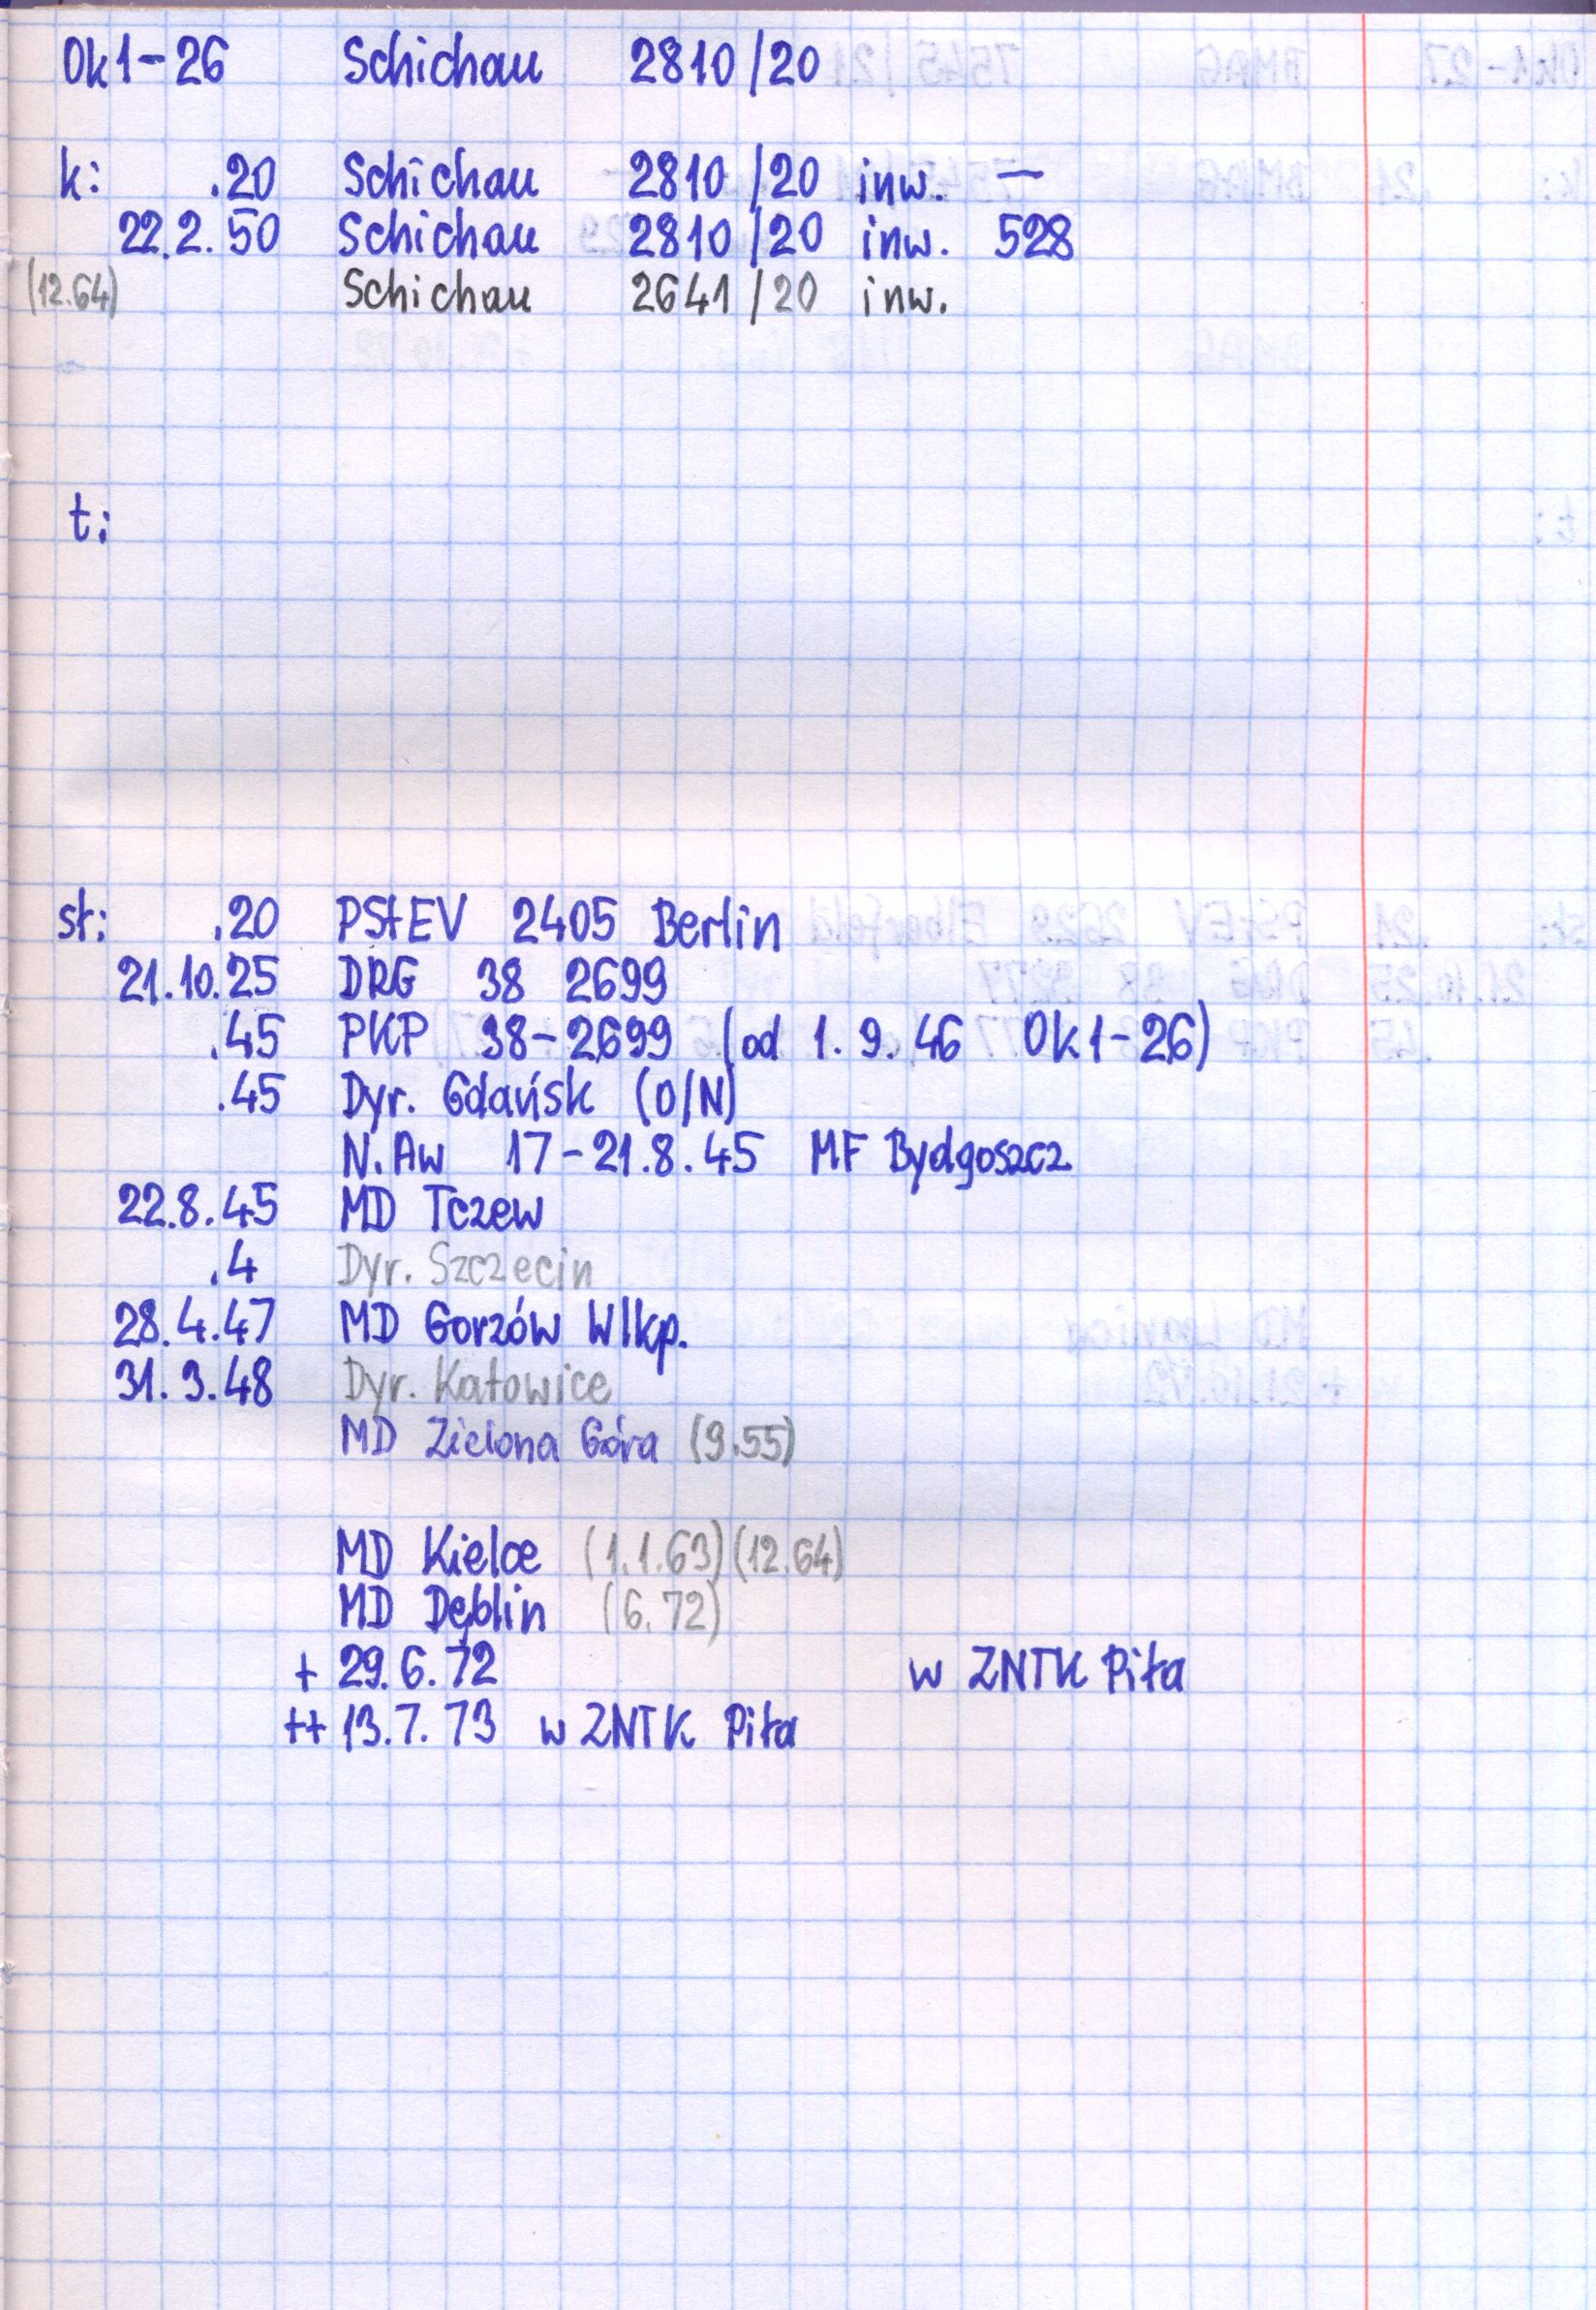 Ok1-26 Schichau 2810/20
k: .20 Schichau 2810/20 inw. —
22.2.50 Schichau 2810/20 inw. 528
(12.64) Schichau 2641/20 inw.
t:
st: .20 PStEV 2405 Berlin
21.10.25 DRG 38 2699
.45 PKP 38-2699 (od 1.9.46 Ok1-26)
.45 Dyr. Gdańsk (O/N)
N.Aw 17-21.8.45 MF Bydgoszcz
22.8.45 MD Tczew
.4 Dyr. Szczecin
28.4.47 MD Gorzów Wlkp.
31.3.48 Dyr. Katowice
MD Zielona Góra (9.55)
MD Kielce (1.1.63) (12.64)
MD Dęblin (6.72)
+ 29.6.72 w ZNTK Piła
++ 13.7.73 w ZNTK Piła